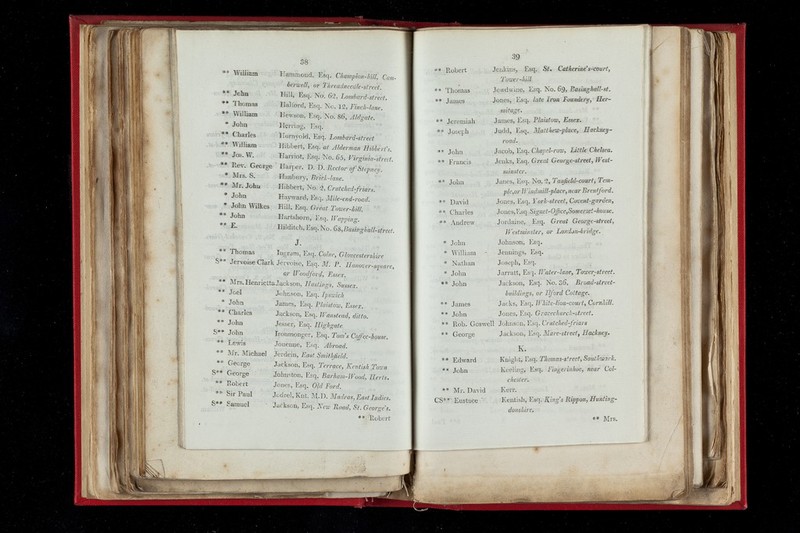 38
** William Hammond, Esq. Champion-hill, Cam-
berwell, or Threadneedle-street.
** John Hill, Esq. No. 62, Lombard-street.
** Thomas Halford, Esq. No. 12, Finch-lane.
** William Hewson, Esq. No. 86, Aldgate.
* John Herring, Esq.
** Charles Hornyold, Esq. Lombard-street
** William Hibbert, Esq. at Alderman Hibbert's.
** Jn. W. Harriot, Esq. No. 65, Virginia-street.
** Rev. George Harper, D. D. Rector of Stepney.
* Mrs. S. Hanbury, Brick-lane.
** Mr. John Hibbert, No. 2, Crutched-friars.
* John Hayward, Esq. Mile-end-road.
* John Wilkes Hill, Esq. Great Tower-hill.
** John Hartshorn, Esq. Wapping.
** E. Hilditch, Esq. No. 64, Basinghall-street.
J.
** Thomas Ingram, Esq. Colne, Glocestershire
S** Jervoise Clark Jervoise, Esq. M. P. Hanover-square,
or Woodford, Essex.
** Mrs. Henrietta Jackson, Hastings, Sussex.
** Joel Johnson, Esq. Ipswich
* John James, Esq. Plaistow, Essex.
** Charles Jackson, Esq. Wanstead, ditto.
** John Jesser, Esq. Highgate
S** John Ironmonger, Esq. Tom's Coffee-house.
** Lewis Jouenne, Esq. Abroad.
** Mr. Michael Jerdein, East Smithfield.
** George Jackson, Esq. Terrace, Kentish Town
S** George Johnston, Esq. Barham-Wood, Herts.
** Robert Jones, Esq. Old Ford.
** Sir Paul Jodrel, Knt. M.D. Madras, East Indies.
S** Samuel Jackson, Esq. New Road, St. George's.
** Robert
39
** Robert Jenkins, Esq. St. Catherine's-court,
Tower-hill
** Thomas Jendwine, Esq. No. 69, Basinghall-st.
** James Jones, Esq. late Iron Foundery, Her-
mitage.
** Jeremiah James, Esq. Plaistow, Essex.
** Joseph Judd, Esq. Matthew-place, Hackney-
road.
** John Jacob, Esq. Chapel-row, Little Chelsea.
** Francis Jenks, Esq. Great George-street, West-
minster.
** John Janes, Esq. No. 2, Tanfield-court, Tem-
ple, or Windmill-place, near Brentford.
** David Jones, Esq. York-street, Covent-garden,
** Charles Jones, Esq. Signet-Office, Somerset-house.
** Andrew Jordaine, Esq. Great George-street,
Westminster, or London-bridge.
* John Johnson, Esq.
* William Jennings, Esq.
* Nathan Joseph, Esq.
* John Jarratt, Esq. Water-lane, Tower-street.
** John Jackson, Esq. No. 36, Broad-street-
buildings, or Ilford Cottage.
** James Jacks, Esq. White-lion-court, Cornhill.
** John Jones, Esq. Gracechurch-street.
** Rob. Gorwell Johnson, Esq. Crutched-friars
** George Jackson, Esq. Mare-street, Hackney.
K.
** Edward Knight, Esq. Thomas-street, Southwark.
** John Keeling, Esq. Fingerinhoe, near Col-
chester.
** Mr. David Kerr.
CS** Eustace Kentish, Esq. King's Rippon, Hunting-
donshire.
** Mrs.